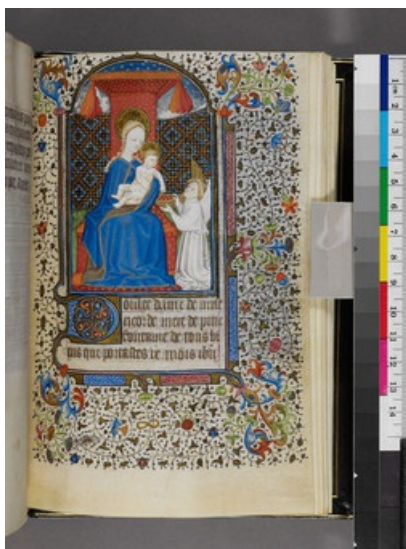 Doulce dame de mise
ricorde mere de pitie
fontaine de tous bi
ens que portastes
1
2
3
4
5
6
7
8
9
10
11
12
13
14